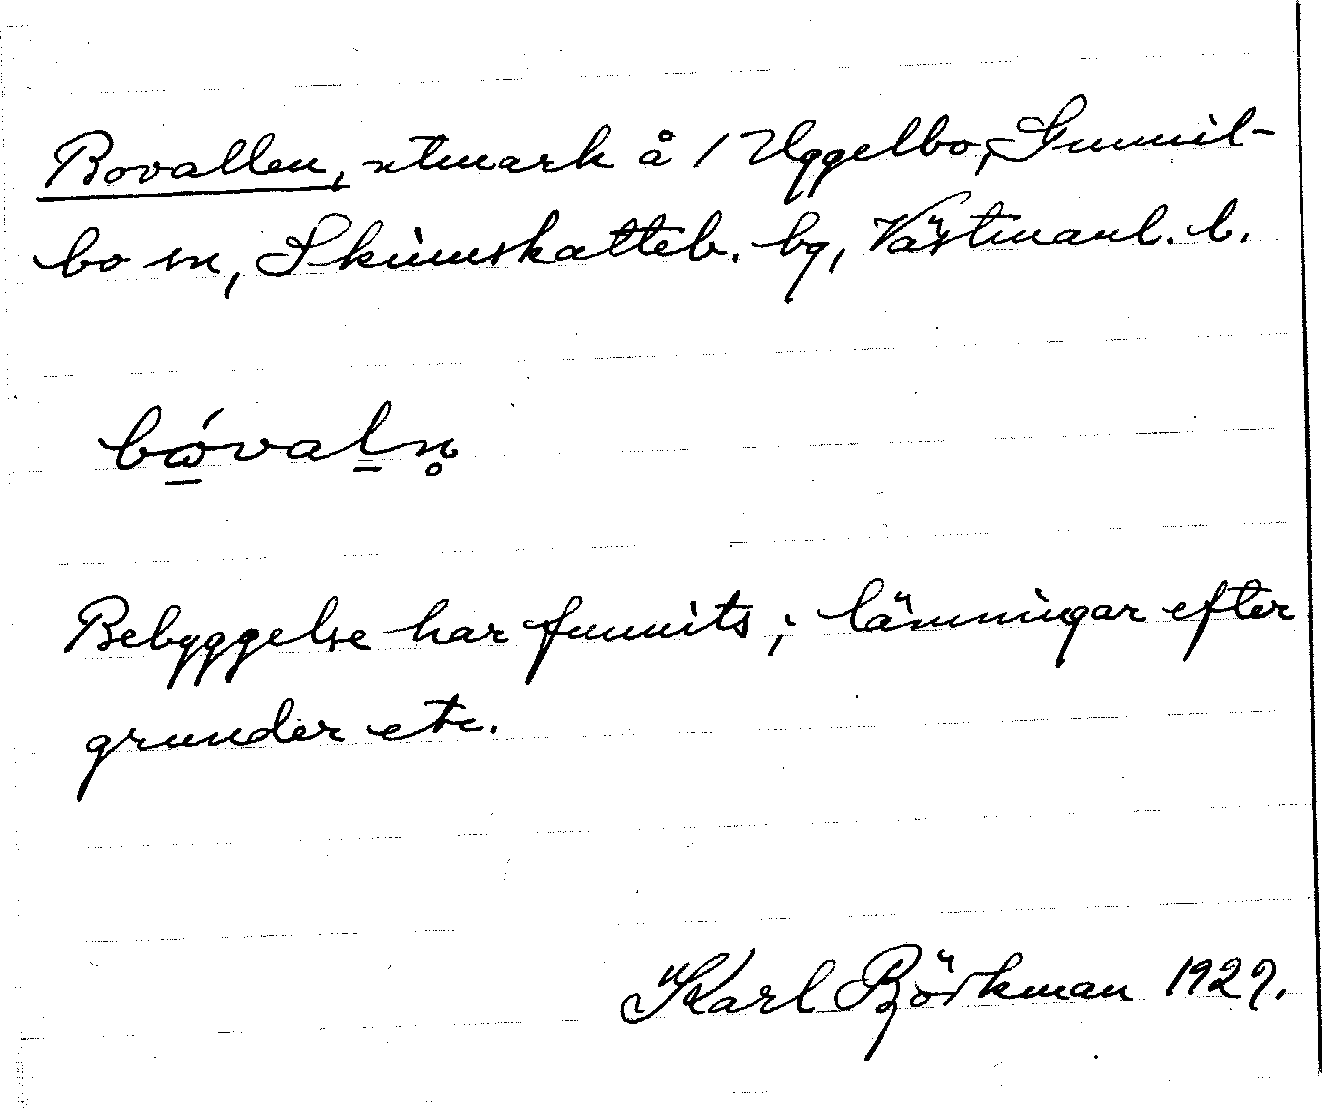 Bovallen, utmark å 1 Uggelbo, Gunnil-
bo sn, Skinnskatteb. bg, Västmanl. l.
bώvaḻn̥
Bebyggelse har funnits; lämningar efter
grunder etc.
Karl Björkman 1927.